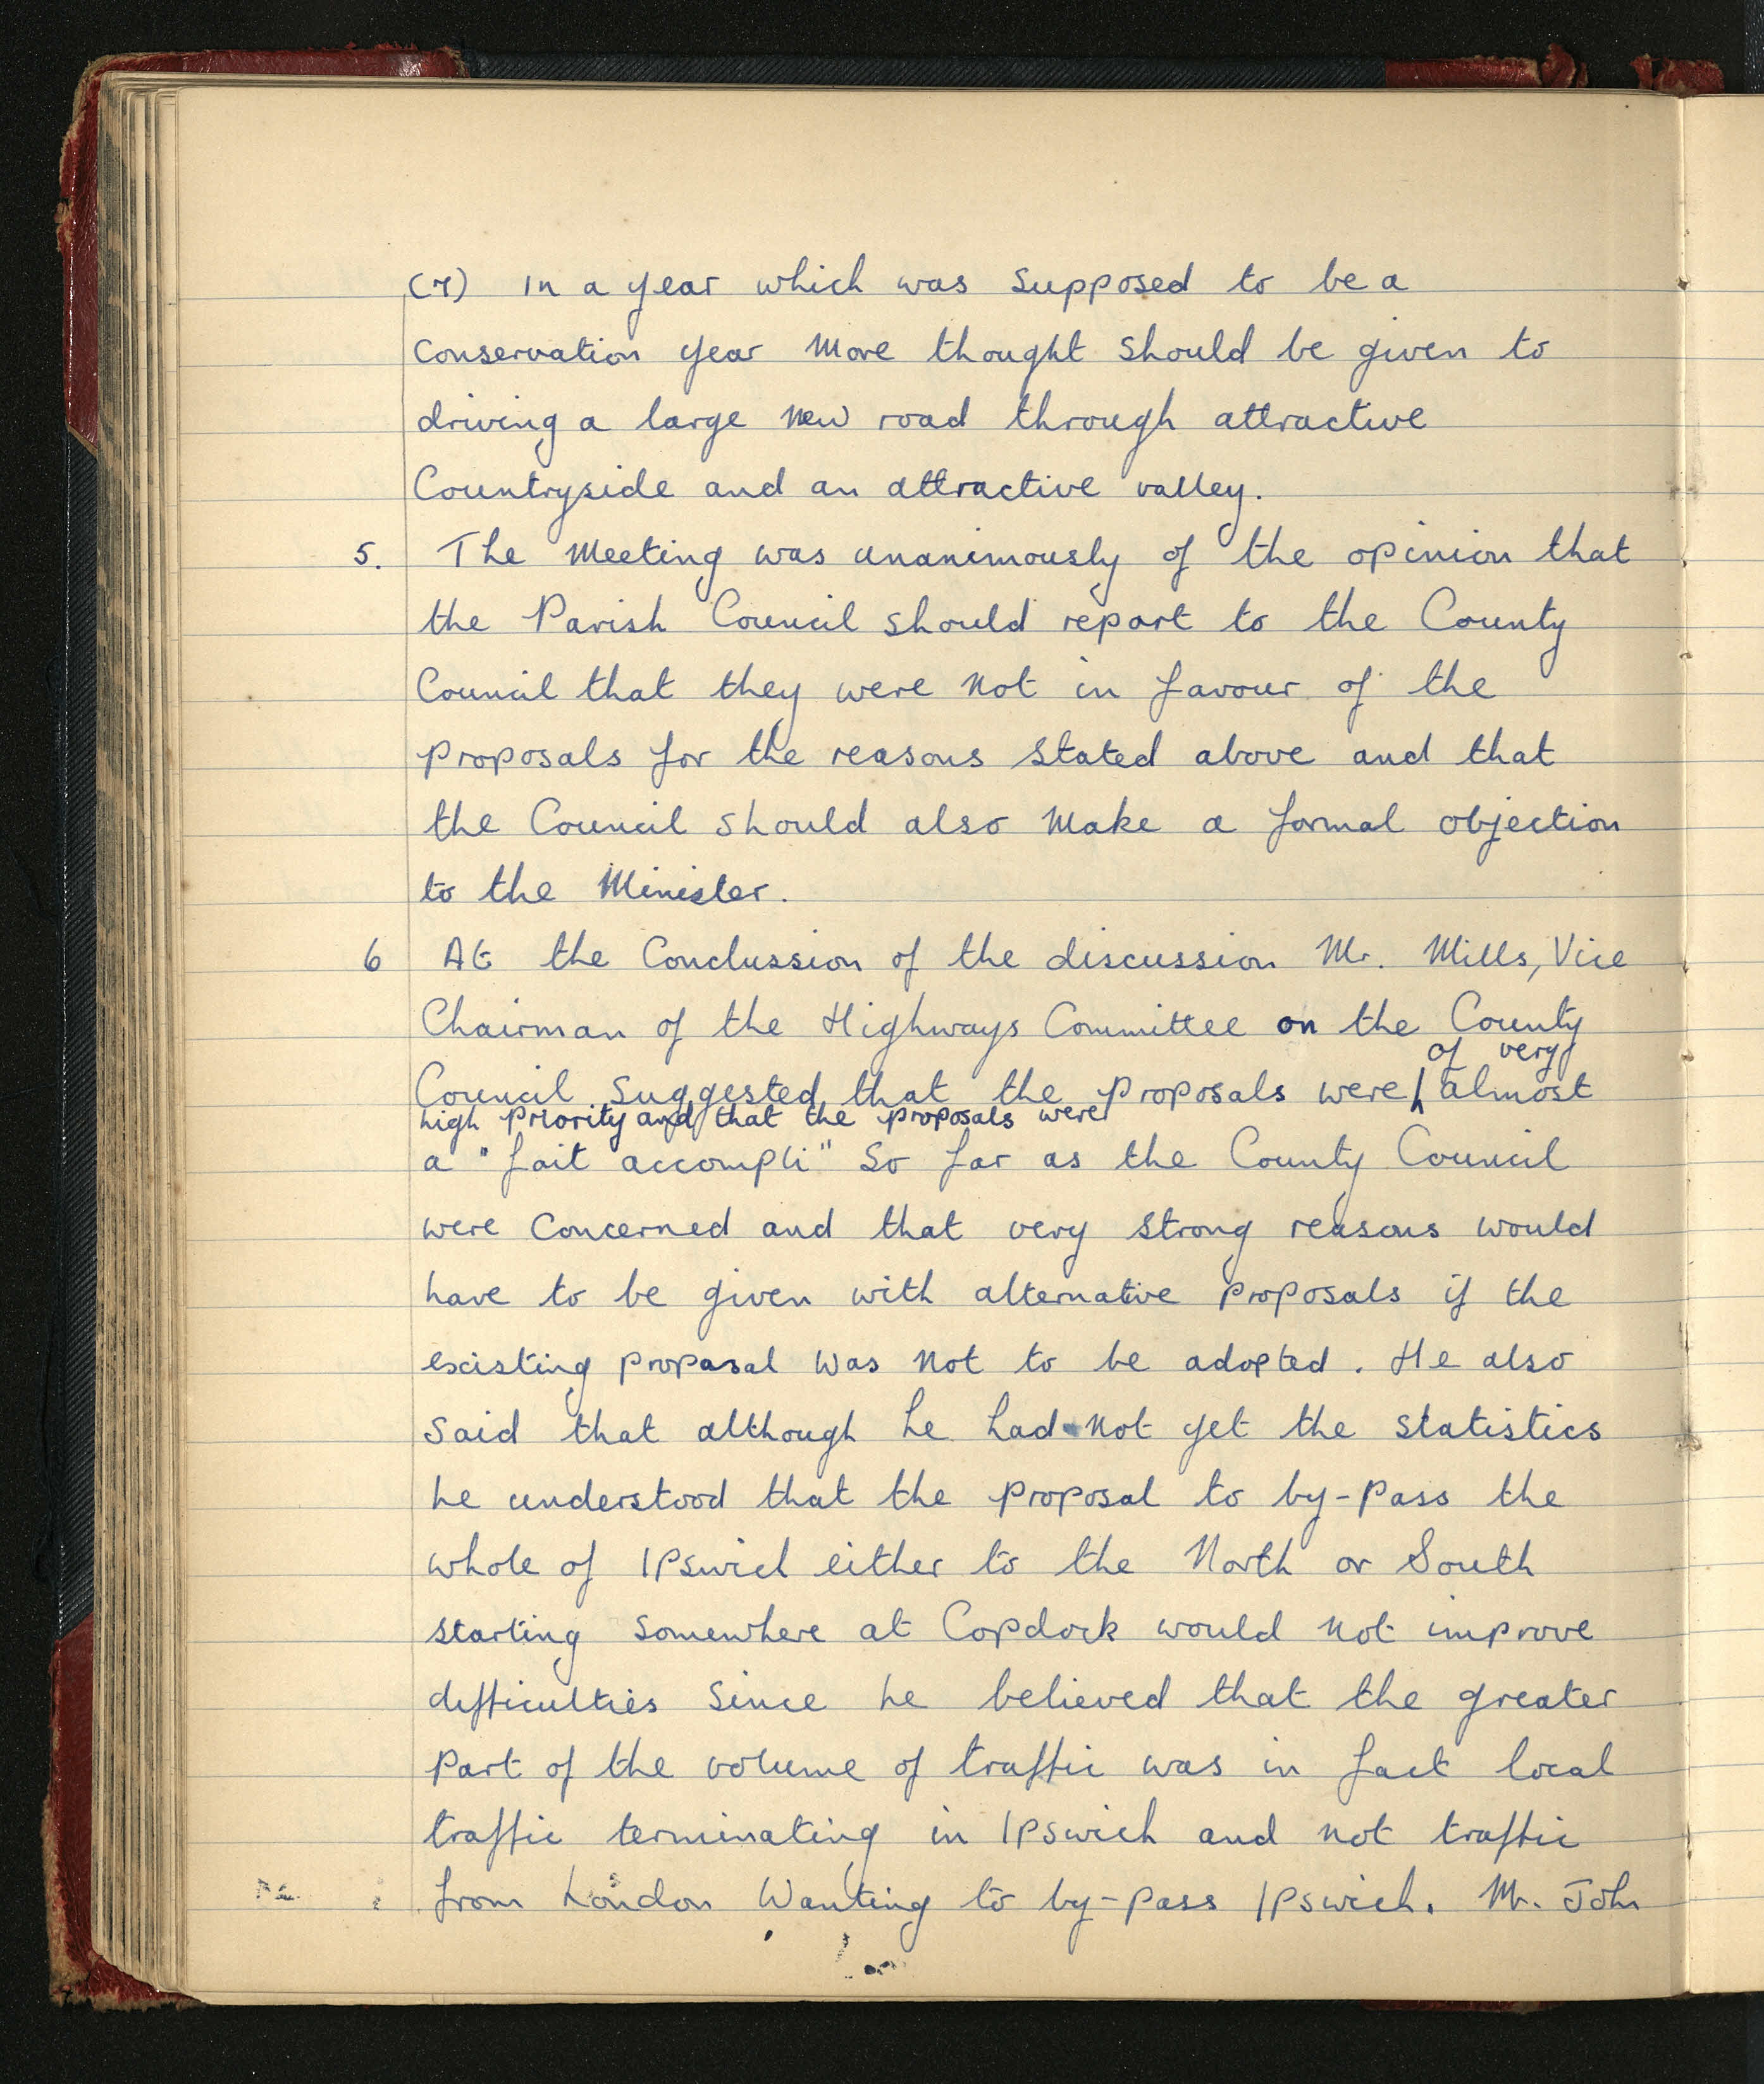 (7) In a year which was supposed to be a
conservation year more thought should be given to
driving a large new road through attractive
Countryside and an attractive valley.
5. The Meeting was unanimously of the opinion that
the Parish Council should report to the County
Council that they were not in favour of the
proposals for the reasons stated above and that
the Council should also make a formal objection
to the Minister.
6 At the Conclussion of the discussion Mr. Mills, Vice
Chairman of the Highways Committee on the County
of very
Council suggested that the proposals were almost
high priority and that the proposals were
a "fait accompli" so far as the County Council
were concerned and that very strong reasons would
have to be given with alternative proposals if the
existing proposal was not to be adopted. He also
said that although he had not yet the statistics
he understood that the proposal to by-pass the
whole of Ipswich either to the North or South
starting somewhere at Copdock would not improve
difficulties since he believed that the greater
part of the volume of traffic was in fact local
traffic terminating in Ipswich and not traffic
from London Wanting to by-pass Ipswich. Mr. John